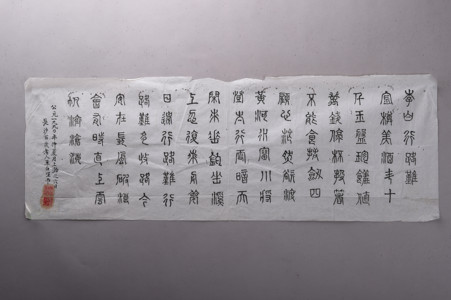 李白行路難
金樽美酒斗十
千玉盤珍饈值
萬錢停杯投箸
不能食拔劍四
顧心茫然欲渡
黃河冰塞川將
登太行雪暗天
閑來垂釣坐溪
上忽復乘舟夢
日邊行路難行
路難多歧路今
安在長風破浪
會有時直上雲
帆濟滄海
公元一九九年